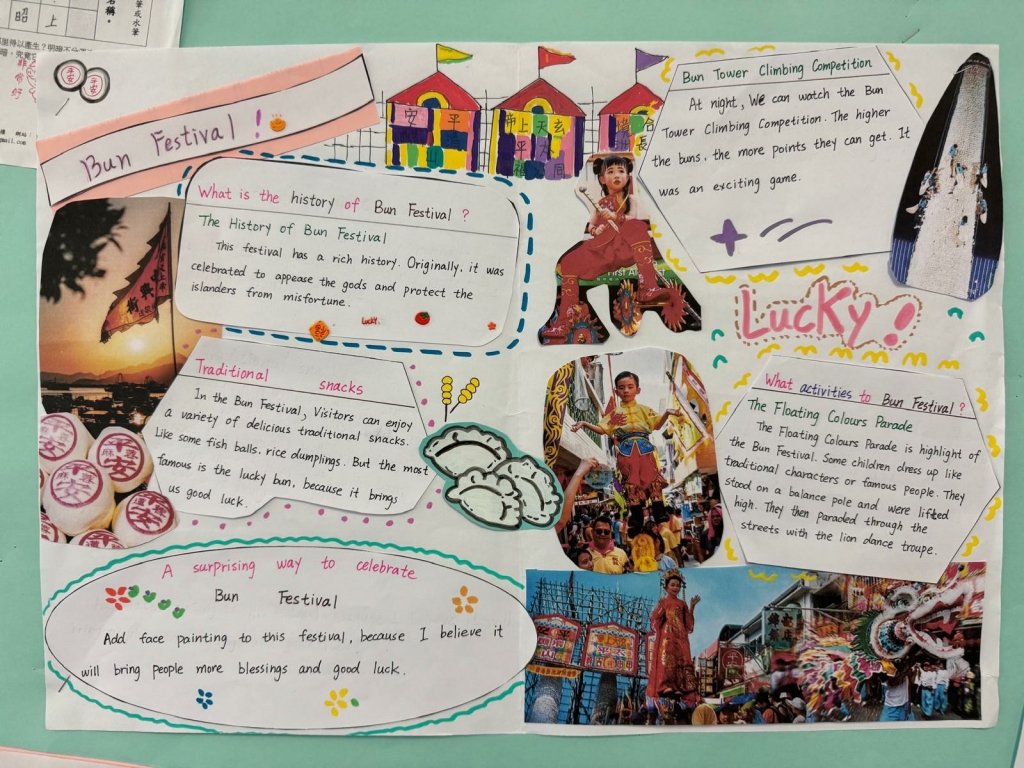 Bun Festival!
What is the history of Bun Festival?
The History of Bun Festival
This festival has a rich history. Originally, it was
celebrated to appease the gods and protect the
islanders from misfortune.
Lucky.
Traditional snacks
In the Bun Festival, Visitors can enjoy
a variety of delicious traditional snacks.
Like some fish balls, rice dumplings. But the most
famous is the lucky bun, because it brings
us good luck.
A surprising way to celebrate
Bun Festival
Add face painting to this festival, because I believe it
will bring people more blessings and good luck.
Bun Tower Climbing Competition
At night, We can watch the Bun
Tower Climbing Competition. The higher
the buns, the more points they can get. It
was an exciting game.
Lucky!
What activities to Bun Festival?
The Floating Colours Parade
The Floating Colours Parade is highlight of
the Bun Festival. Some children dress up like
traditional characters or famous people. They
stood on a balance pole and were lifted
high. They then paraded through the
streets with the lion dance troupe.
平安
平安